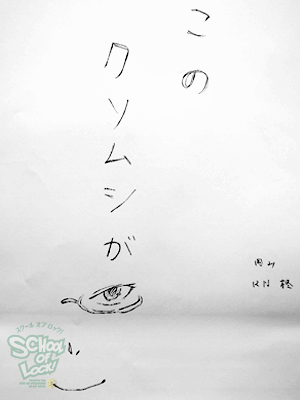 この
クソムシが
RN
スクール オブ ロック!
SCHOOL
OF
LOCK!